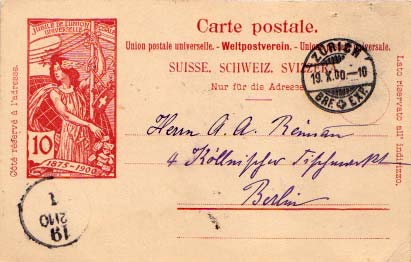 Carte postale.
Union postale universelle. - Weltpostverein. - Unione postale universale.
SUISSE. SCHWEIZ. SVIZZERA.
Nur für die Adresse.
JUBILÉ DE L'UNION
UNIVERSELLE
POSTALE
10
1875-1900
Côté réservé à l'adresse.
Lato riservato all' indirizzo.
ZÜRICH
19.X.00.-10
BRF. EXP.
Herrn A. A.
4 Köllnischer Fischmarkt
Berlin
19
2110
1